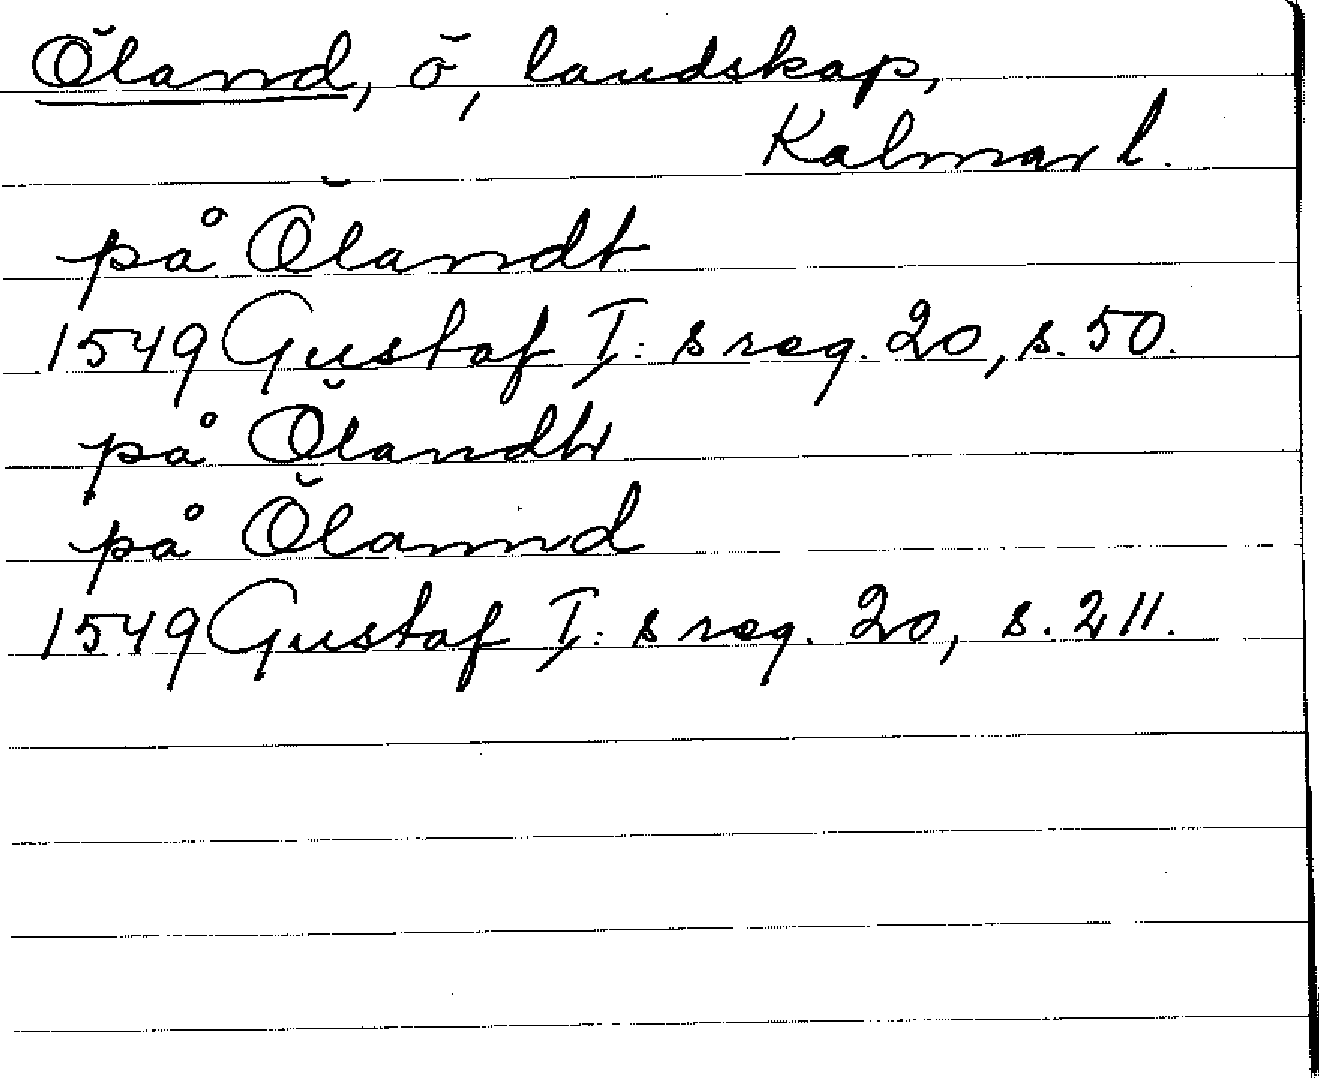 Öland, ö, landskap,
Kalmar l.
på Ölandt
1549 Gustaf I:s reg. 20, s. 50.
på Ölandtt
på Ölannd
1549 Gustaf I:s reg. 20, s. 211.